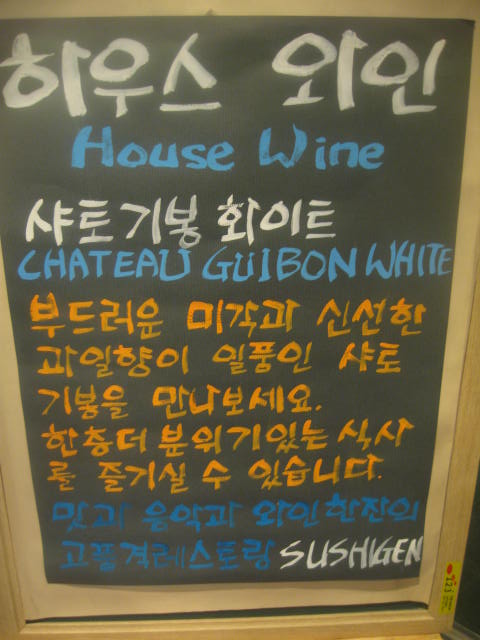 하우스 와인
House Wine
샤토기봉 화이트
CHATEAU GUIBON WHITE
부드러운 미각과 신선한
과일향이 일품인 샤토
기봉을 만나보세요.
한층더 분위기있는 식사
를 즐기실 수 있습니다.
맛과 음악과 와인한잔의
고품격레스토랑 SUSHIGEN